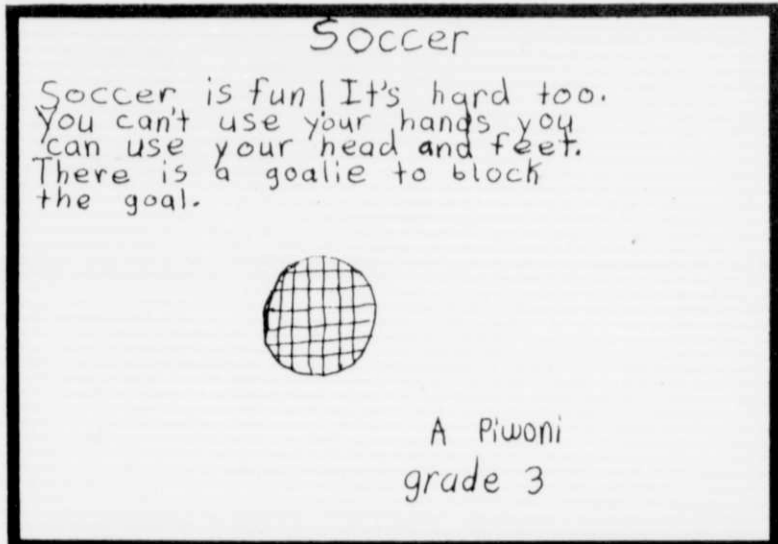 Soccer
Soccer is fun! It's hard too.
You can't use your hands you
can use your head and feet.
There is a goalie to block
the goal.
A Piwoni
grade 3